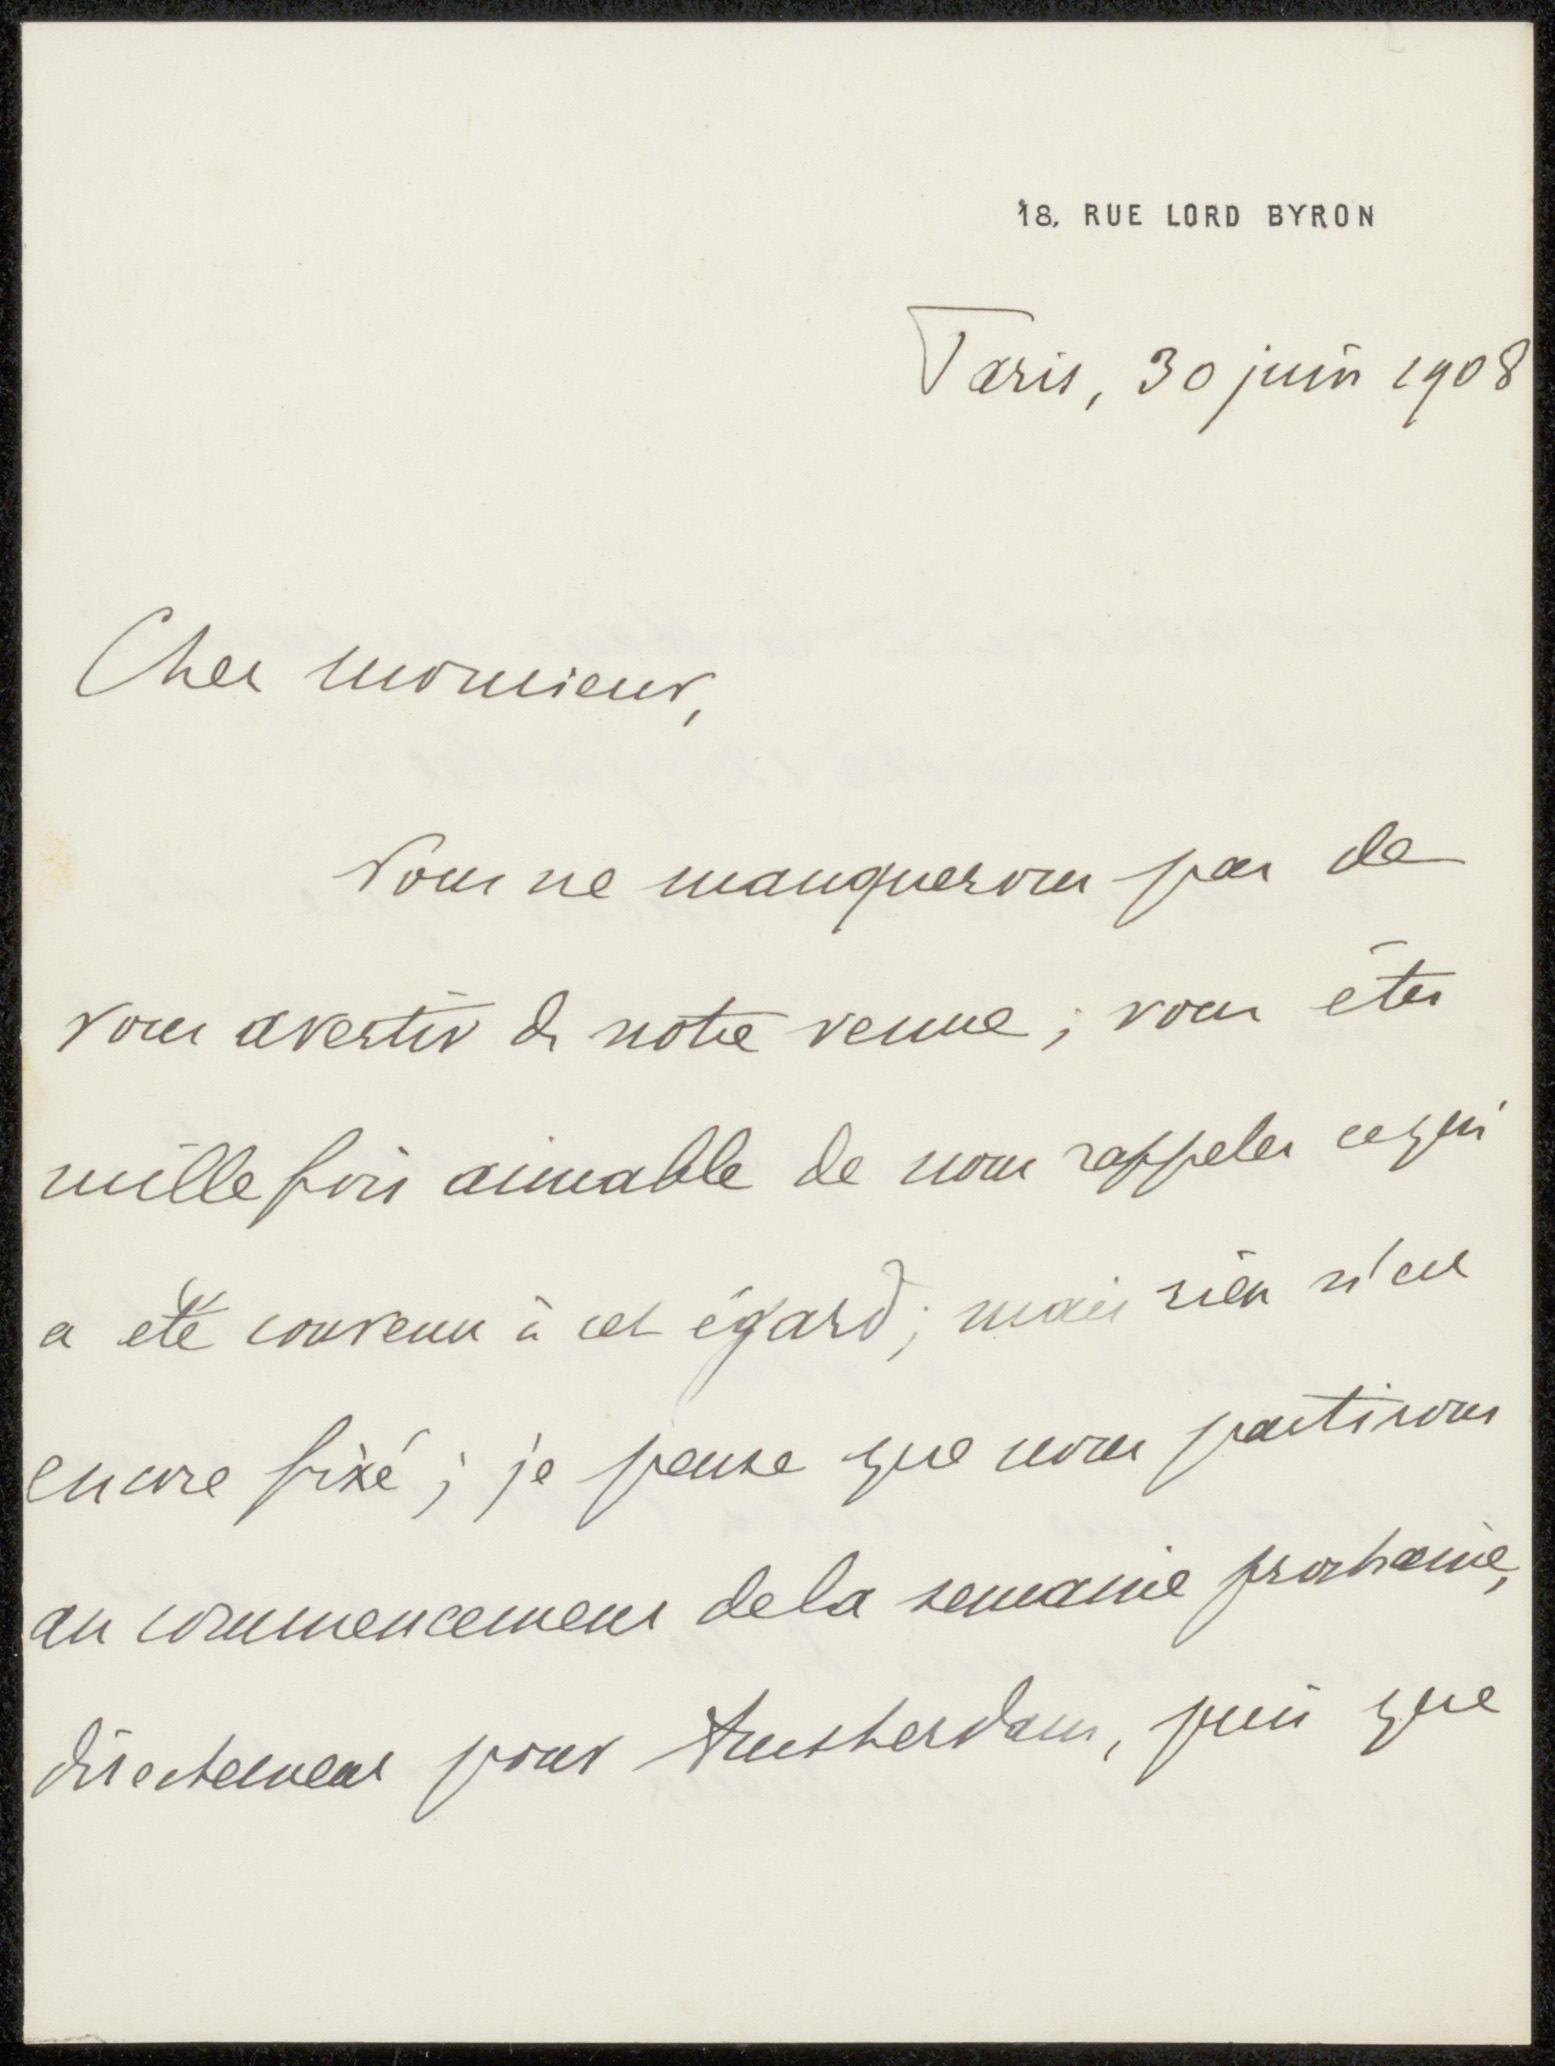 18, RUE LORD BYRON
Paris, 30 juin 1908
Cher monsieur,
Nous ne manquerons pas de
vous avertir de notre venue ; vous êtes
mille fois aimable de nous rappeler ce qui
a été convenu à cet égard ; mais rien n'est
encore fixé ; je pense que nous partirons
au commencement de la semaine prochaine,
directement pour Amsterdam, puis que